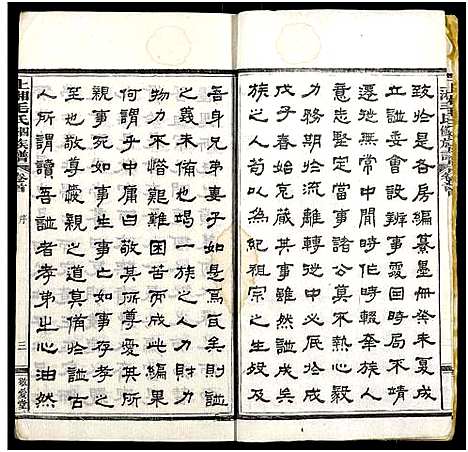 致恰是各房編纂墨冊癸未夏成
立譜委會設辦事處因時局不靖
遷徙無常中間作時輟奉族人
意志堅定當事諸公莫不熱心毅
力務期流離轉徙中必底於成
戊子春始付其事雖然譜成矣
族之人苟以為紀祖宗之生歿及
吾身兄弟妻子如是焉瓦矣則譜
之義未備也竭一族之人力財力
物力不惜艱難困苦而成此編果
何謂乎中庸曰敬其所尊愛其所
親事死如事生事亡如事存孝之
至也敬尊愛親之道莫備於譜古
人所謂讀吾譜者孝弟之心油然
上湘毛氏四修族譜 卷首
序
三
敬愛堂